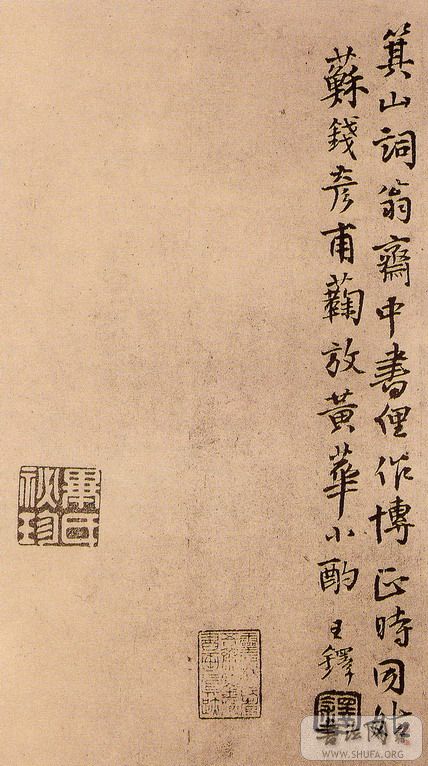 箕山詞翁齋中書俚作博正時同姑
蘇錢彥甫蘜放黃華小酌 王鐸
畢氏祕珍
WWW.SHUFA.ORG